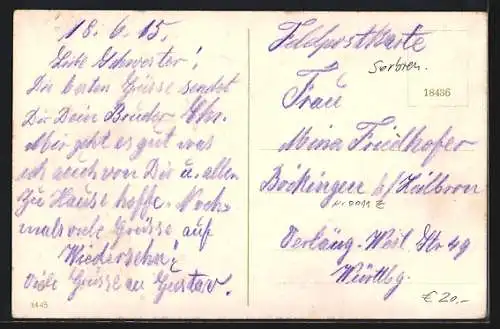 18.6.15.
Liebe Schwester!
Die besten Grüsse sendet
Dir Dein Bruder Chr.
Mir geht es gut was
ich auch von Dir u. allen
zu Hause hoffe. Noch-
malsviele Grüsse auf
Wiedersehn!
Viele Grüsse an Gustav.
1445
Feldpostkarte
Serbien.
18436
Frau
Mina Friedhofer
Böckingen b/Heilbron
Verläng. West. Str 49
Württbg.
€ 20,-